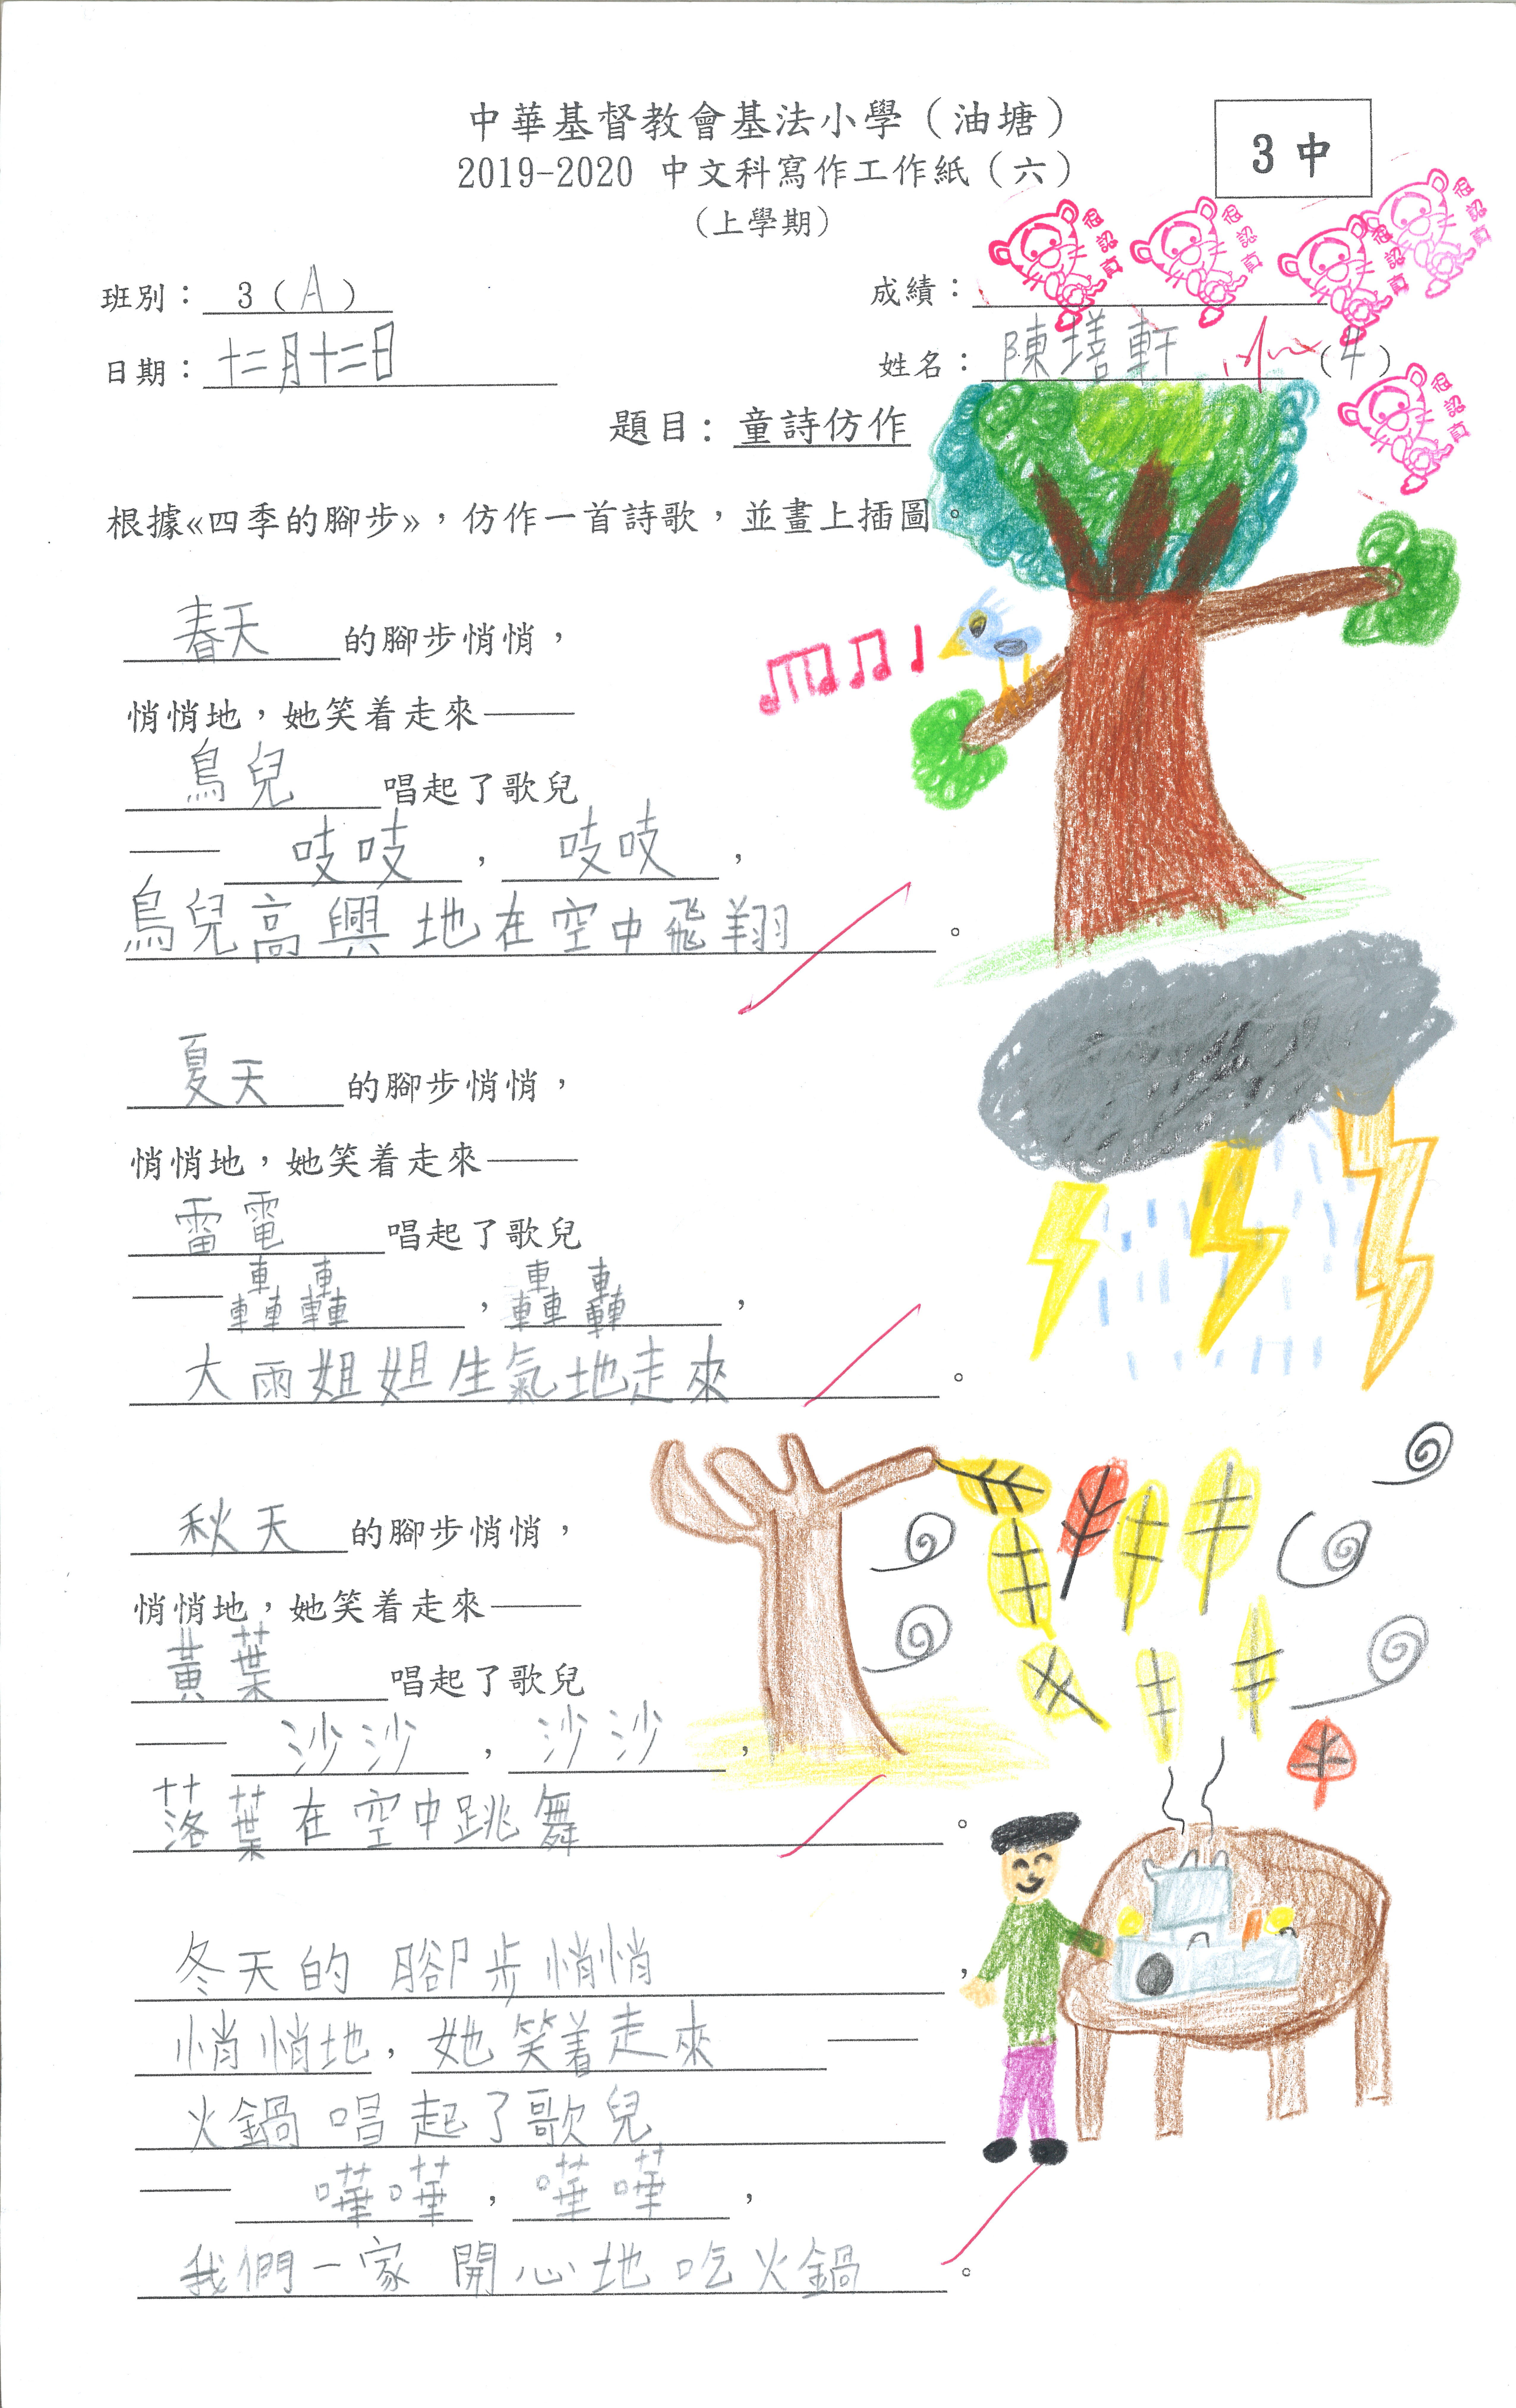 中華基督教會基法小學（油塘）
3中
2019-2020 中文科寫作工作紙（六）
（上學期）
很認真
很認真
很認真
很認真
班別： 3（A）
成績：
日期：十二月十二日
姓名：陳墡軒（4）
很認真
題目：童詩仿作
根據«四季的腳步»，仿作一首詩歌，並畫上插圖。
春天的腳步悄悄，
悄悄地，她笑着走來——
鳥兒唱起了歌兒
——吱吱，吱吱，
鳥兒高興地在空中飛翔。
夏天的腳步悄悄，
悄悄地，她笑着走來——
雷電唱起了歌兒
——轟轟，轟轟，
大雨姐姐生氣地走來。
秋天的腳步悄悄，
悄悄地，她笑着走來——
黃葉唱起了歌兒
——沙沙，沙沙，
落葉在空中跳舞。
冬天的腳步悄悄，
悄悄地，她笑着走來——
火鍋唱起了歌兒
——嘩嘩，嘩嘩，
我們一家開心地吃火鍋。